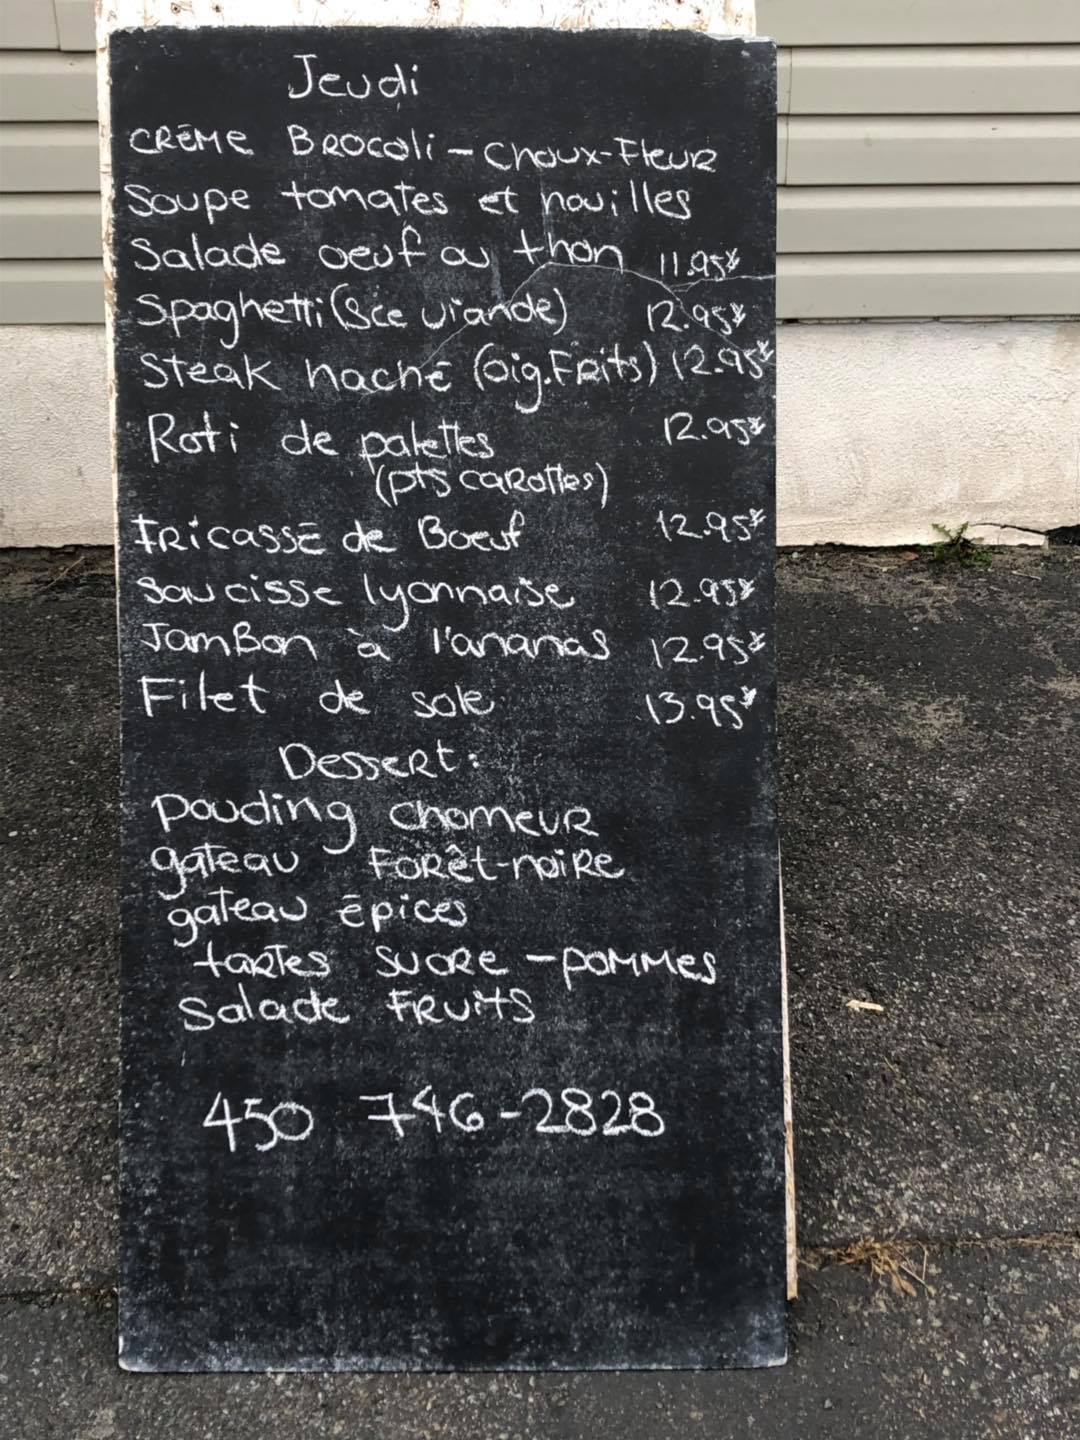 Jeudi
CRĒME BROCOli - Choux-FleuR
Soupe tomates et nouilles
Salade oeuf ou thon 11.95$
Spaghetti (Sce viande) 12.95$
Steak haché (oig.FRits) 12.95$
Roti de palettes 12.95$
(pts caRottes)
FRicassē de Boeuf 12.95$
Saucisse lyonnaise 12.95$
JamBon à l'ananas 12.95$
Filet de sole 13.95$
DesseRt:
Pouding chomeuR
gateau FoRêt-noiRe
gateau épices
taRtes SucRe - pommes
Salade FRuits
450 746-2828